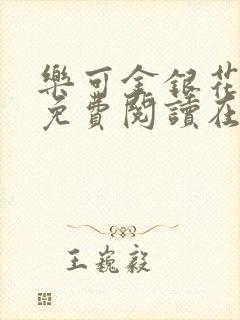 樂可金銀花
免費閱讀在
王巍毅